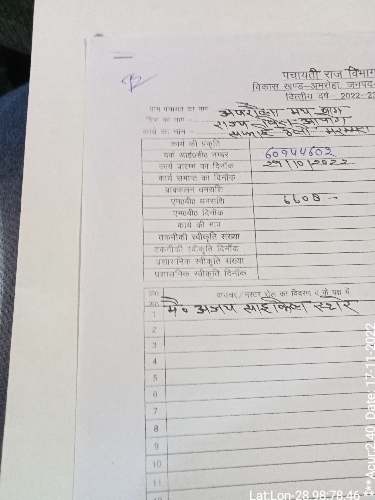 पंचायती राज विभाग
विकास खण्ड-अमरोहा, जनपद-
वित्तीय वर्ष - 2022-23
ग्राम पंचायत का नाम
राज्य वित्त आयोग
कार्य का नाम - सफाई ठेली मरम्मत
कार्य की प्रकृति
वर्क आई०डी० नम्बर 60944602
कार्य प्रारम्भ का दिनाँक 29/10/2022
कार्य समाप्त का दिनाँक
प्राक्कलन धनराशि
एम०बी० धनराशि 6608 -
एम०बी० दिनाँक
कार्य की माप
तकनीकी स्वीकृति संख्या
तकनीकी स्वीकृति दिनाँक
प्रशासनिक स्वीकृति संख्या
प्रशासनिक स्वीकृति दिनाँक
वाउचर/मस्टर रोल का विवरण
1 मै० अजय साईकिल स्टोर
2
3
4
5
6
7
8
9
10
11
Lat:Lon-28.98:78.46
Acur:2.40 Date:17-11-2022